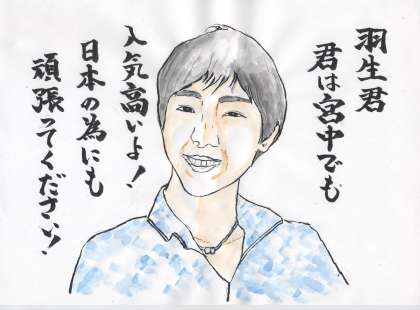 羽生君
君は宮中でも
人気高いよ!
日本の為にも
頑張ってください!